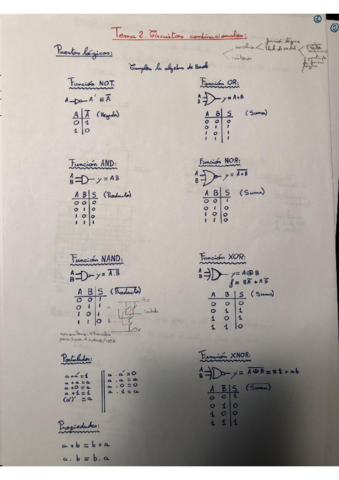 Tema 2. Circuitos combinacionales:
Puertas lógicas:
Cumplen la álgebra de Boole
Función NOT:
A A' ≡ Ā
A Ā (Negado)
0 1
1 0
Función OR:
A
B y = A+B
A B S (Suma)
0 0 0
0 1 1
1 0 1
1 1 1
Función AND:
A
B y = AB
A B S (Producto)
0 0 0
0 1 0
1 0 0
1 1 1
Función NOR:
A
B y = A+B
A B S (Suma)
0 0 1
0 1 0
1 0 0
1 1 0
Función NAND:
A
B y = A.B
A B S (Producto)
0 0 1
0 1 1
1 0 1
1 1 0
salida
Función XOR:
A
B y = A⊕B
A B S (Suma)
0 0 0
0 1 1
1 0 1
1 1 0
Postulados:
a+a'=1 a.a'=0
a+a=a a.a=a
a+0=a a.0=0
a+1=1 a.1=a
(a')' = a
Función XNOR:
A
B
A B S (Suma)
0 0 1
0 1 0
1 0 0
1 1 1
Propiedades:
a+b = b+a
a.b = b.a